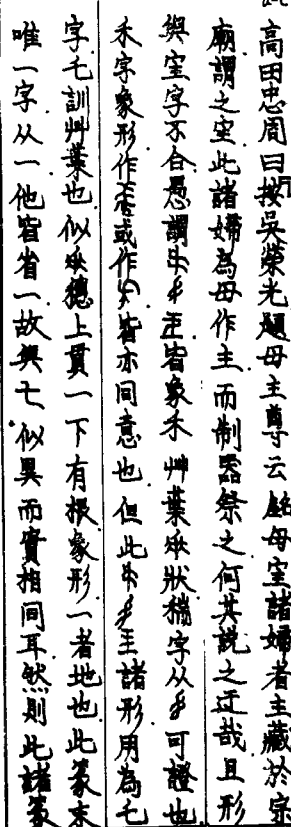 高田忠周曰按吳榮光題母主尊云銘母宔諸婦者主藏於宗
廟謂之宔此諸婦為母作主而制器祭之何其說之迂哉且形
與宔字不合愚謂皆象禾艸葉𠂹狀稱字从可證也
禾字象形作或作皆亦同意也但此諸形用為乇
字乇訓艸葉也似𠂹穗上貫一下有根象形一者地也此篆末
唯一字从一他皆省一故與七似異而實相同耳然則此諸篆